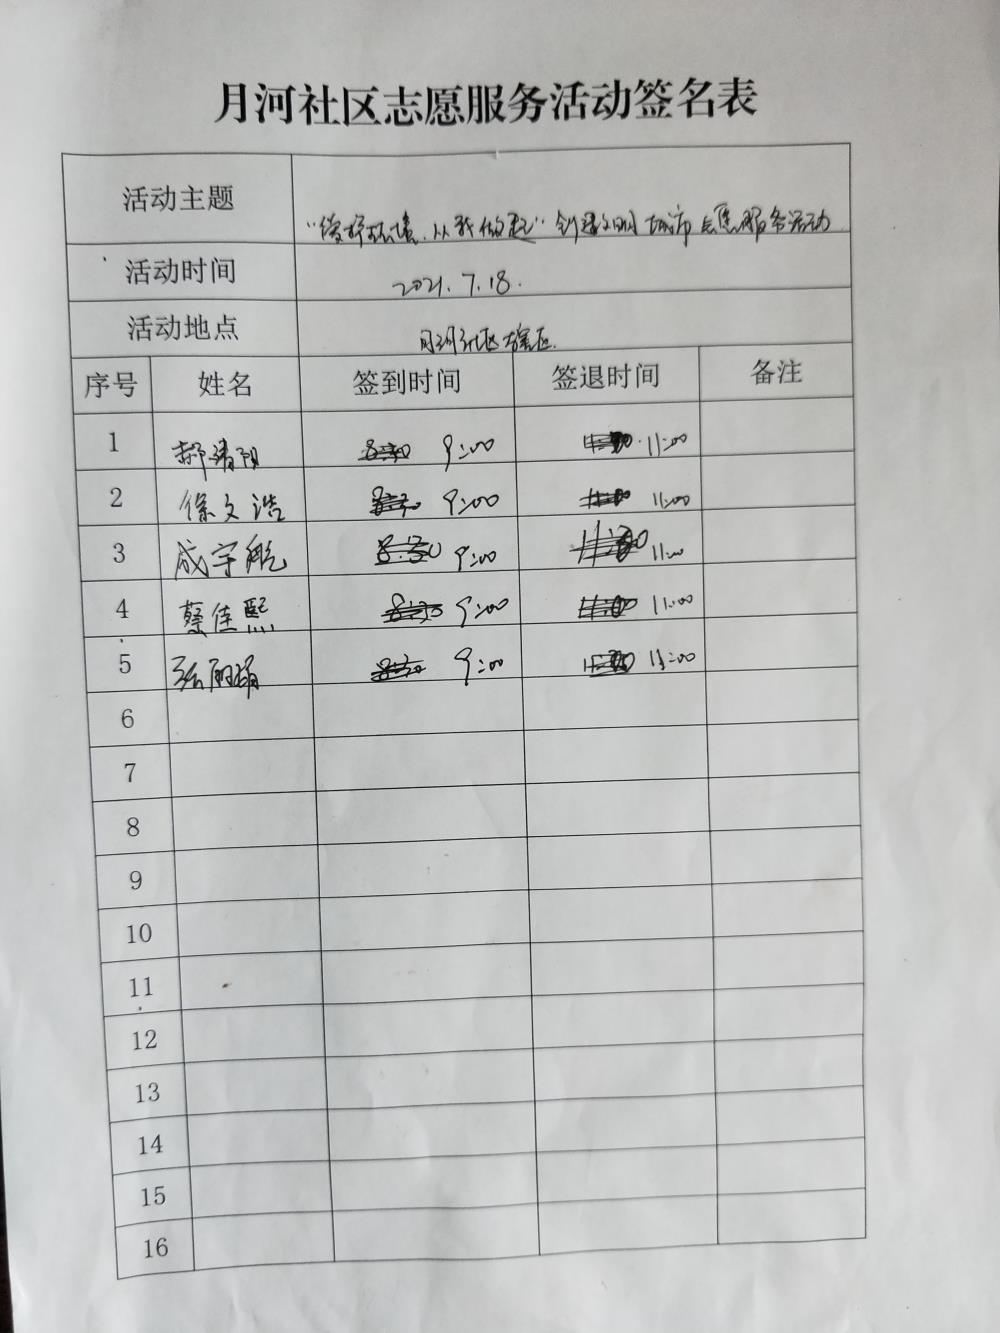 月河社区志愿服务活动签名表
活动主题 "爱护环境.从我做起"创建文明城市志愿服务活动
活动时间 2021.7.18.
活动地点 月河社区辖区
序号 姓名 签到时间 签退时间 备注
1 郝清阳 9:00 11:00
2 徐文浩 9:00 11:00
3 成宇航 8:30 9:00 11:30 11:00
4 蔡佳熙 8:30 9:00 11:00
5 张 8:30 9:00 11:00
6
7
8
9
10
11
12
13
14
15
16